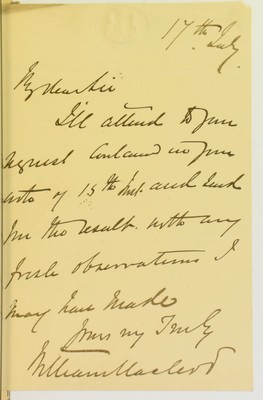 17th July.
My dear Sir
I'll attend to your
request contained in your
note of 15th Inst. and send
you the result with any
fresh observations I
may have made
Yours very Truly
William Macleod